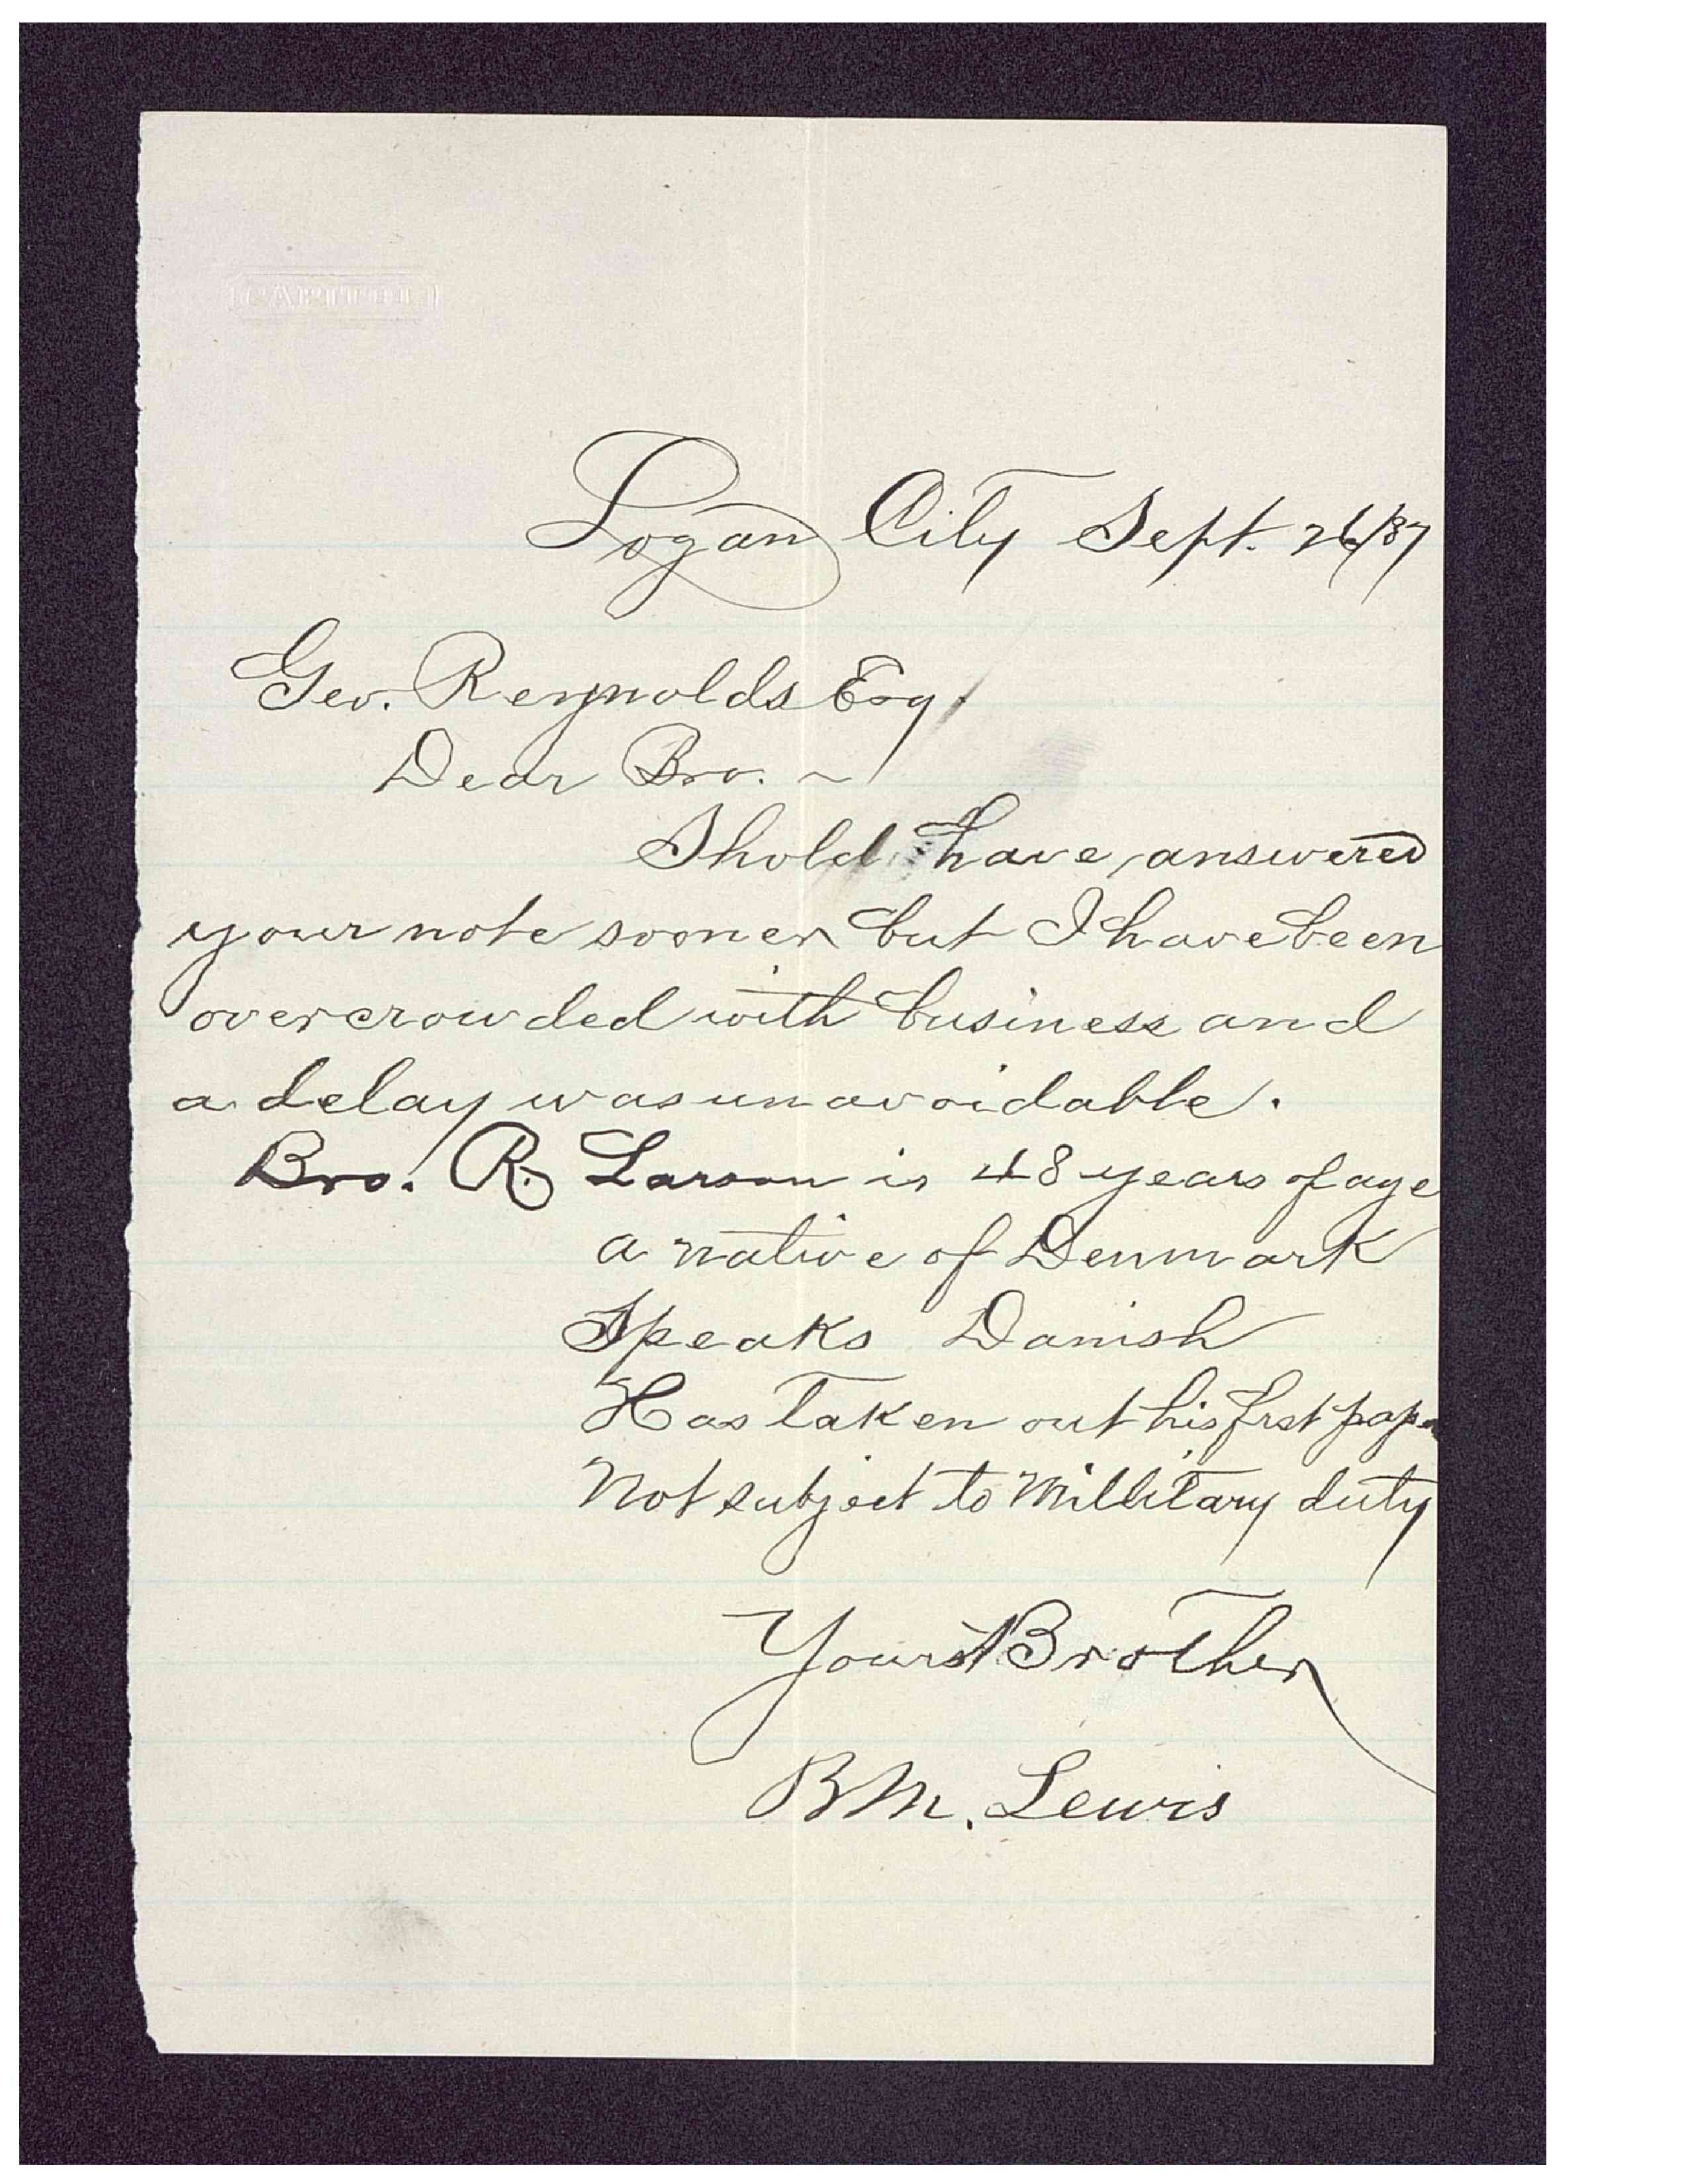 CAPITOL
Logan City Sept. 26/87
Geo. Reynolds Esq.
Dear Bro. ~
Shold have answered
your note sooner but I have been
overcrowded with business and
a delay was unavoidable.
Bro. R. Larson is 48 years of age
a native of Denmark
Speaks Danish
Has taken out his frst
Not subject to Millitary duty
Brother
B M. Lewis